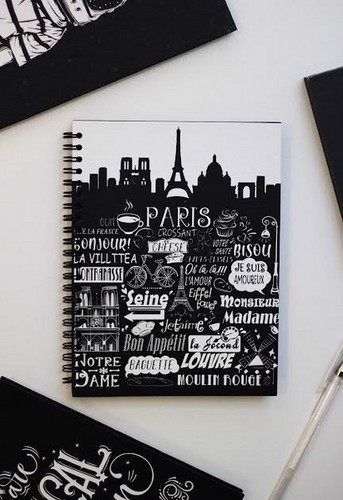 PARIS
VIVE LA FRANCE
CROISSANT
BONJOUR!
CHEESE
VOTRE
SANTÉ
BISOU
LA VILLTTEA
Oh la la!!
JE SUIS
AMOUREUX
MONTPARNASSE
L'AMOUR
Eiffel
Tower
Seine
MONSIEUR
Madame
Je t'aime
Bon Appétit
la Jocond
NOTRE
DAME
BAGUETTE
LOUVRE
MOULIN ROUGE